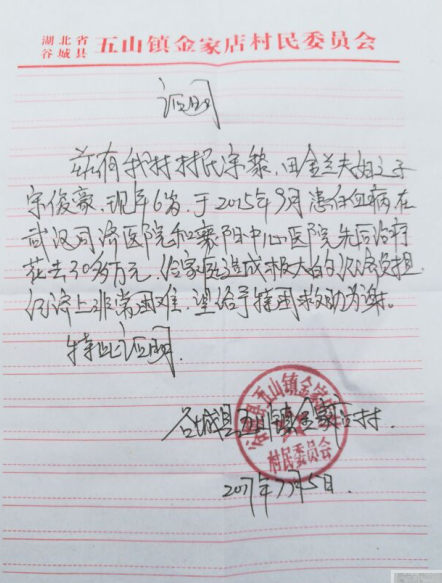 湖北省
谷城县 五山镇金家店村民委员会
证明
兹有我村村民宗黎、田金兰夫妇之子
宗俊豪,现年6岁,于2015年9月患白血病,在
武汉同济医院和襄阳中心医院先后治疗
花去30多万元,给家庭造成极大的经济负担,
经济上非常困难,望给予特困救助为谢。
特此证明
谷城县五山镇金家店村
谷城县五山镇金家店村
村民委员会
2017年7月5日.